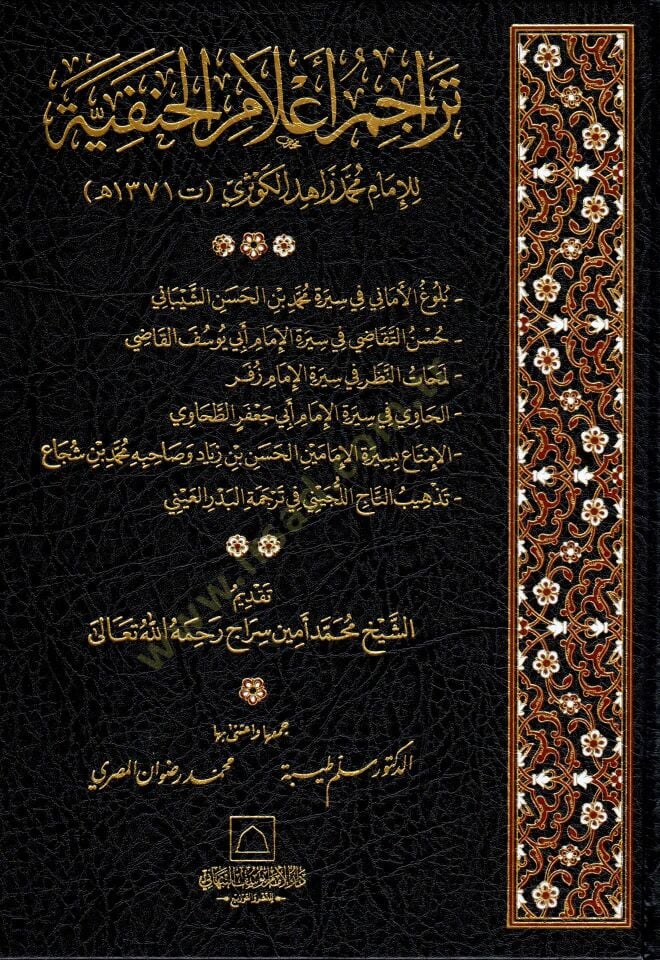 تَرَاجِمُ أَعْلَامِ الحَنَفِيَّةِ
لِلإِمَامِ مُحَمَّد زَاهِد الكَوْثَرِي (ت ١٣٧١هـ)
- بُلُوغُ الأَمَانِي فِي سِيرَةِ مُحَمَّدِ بْنِ الحَسَنِ الشَّيْبَانِي
- حُسْنُ التَّقَاضِي فِي سِيرَةِ الإِمَامِ أَبِي يُوسُفَ القَاضِي
- لَمَحَاتُ النَّظَرِ فِي سِيرَةِ الإِمَامِ زُفَر
- الحَاوِي فِي سِيرَةِ الإِمَامِ أَبِي جَعْفَرٍ الطَّحَاوِي
- الإِمْتَاعُ بِسِيرَةِ الإِمَامَيْنِ الحَسَنِ بْنِ زِيَاد وَصَاحِبِهِ مُحَمَّدِ بْنِ شُجَاع
- تَذْهِيبُ التَّاجِ اللُّجَيْنِي فِي تَرْجَمَةِ البَدْرِ العَيْنِي
تَقْدِيمُ
الشَّيْخِ مُحَمَّد أَمِين سِرَاج رَحِمَهُ اللهُ تَعَالَى
جمعها واعتنى بها
الدكتور سلم طيبة محمد رضوان المصري
دَارُ الإِمَامِ يُوسُفَ النَّبْهَانِي
لِلنَّشْرِ وَالتَّوْزِيعِ